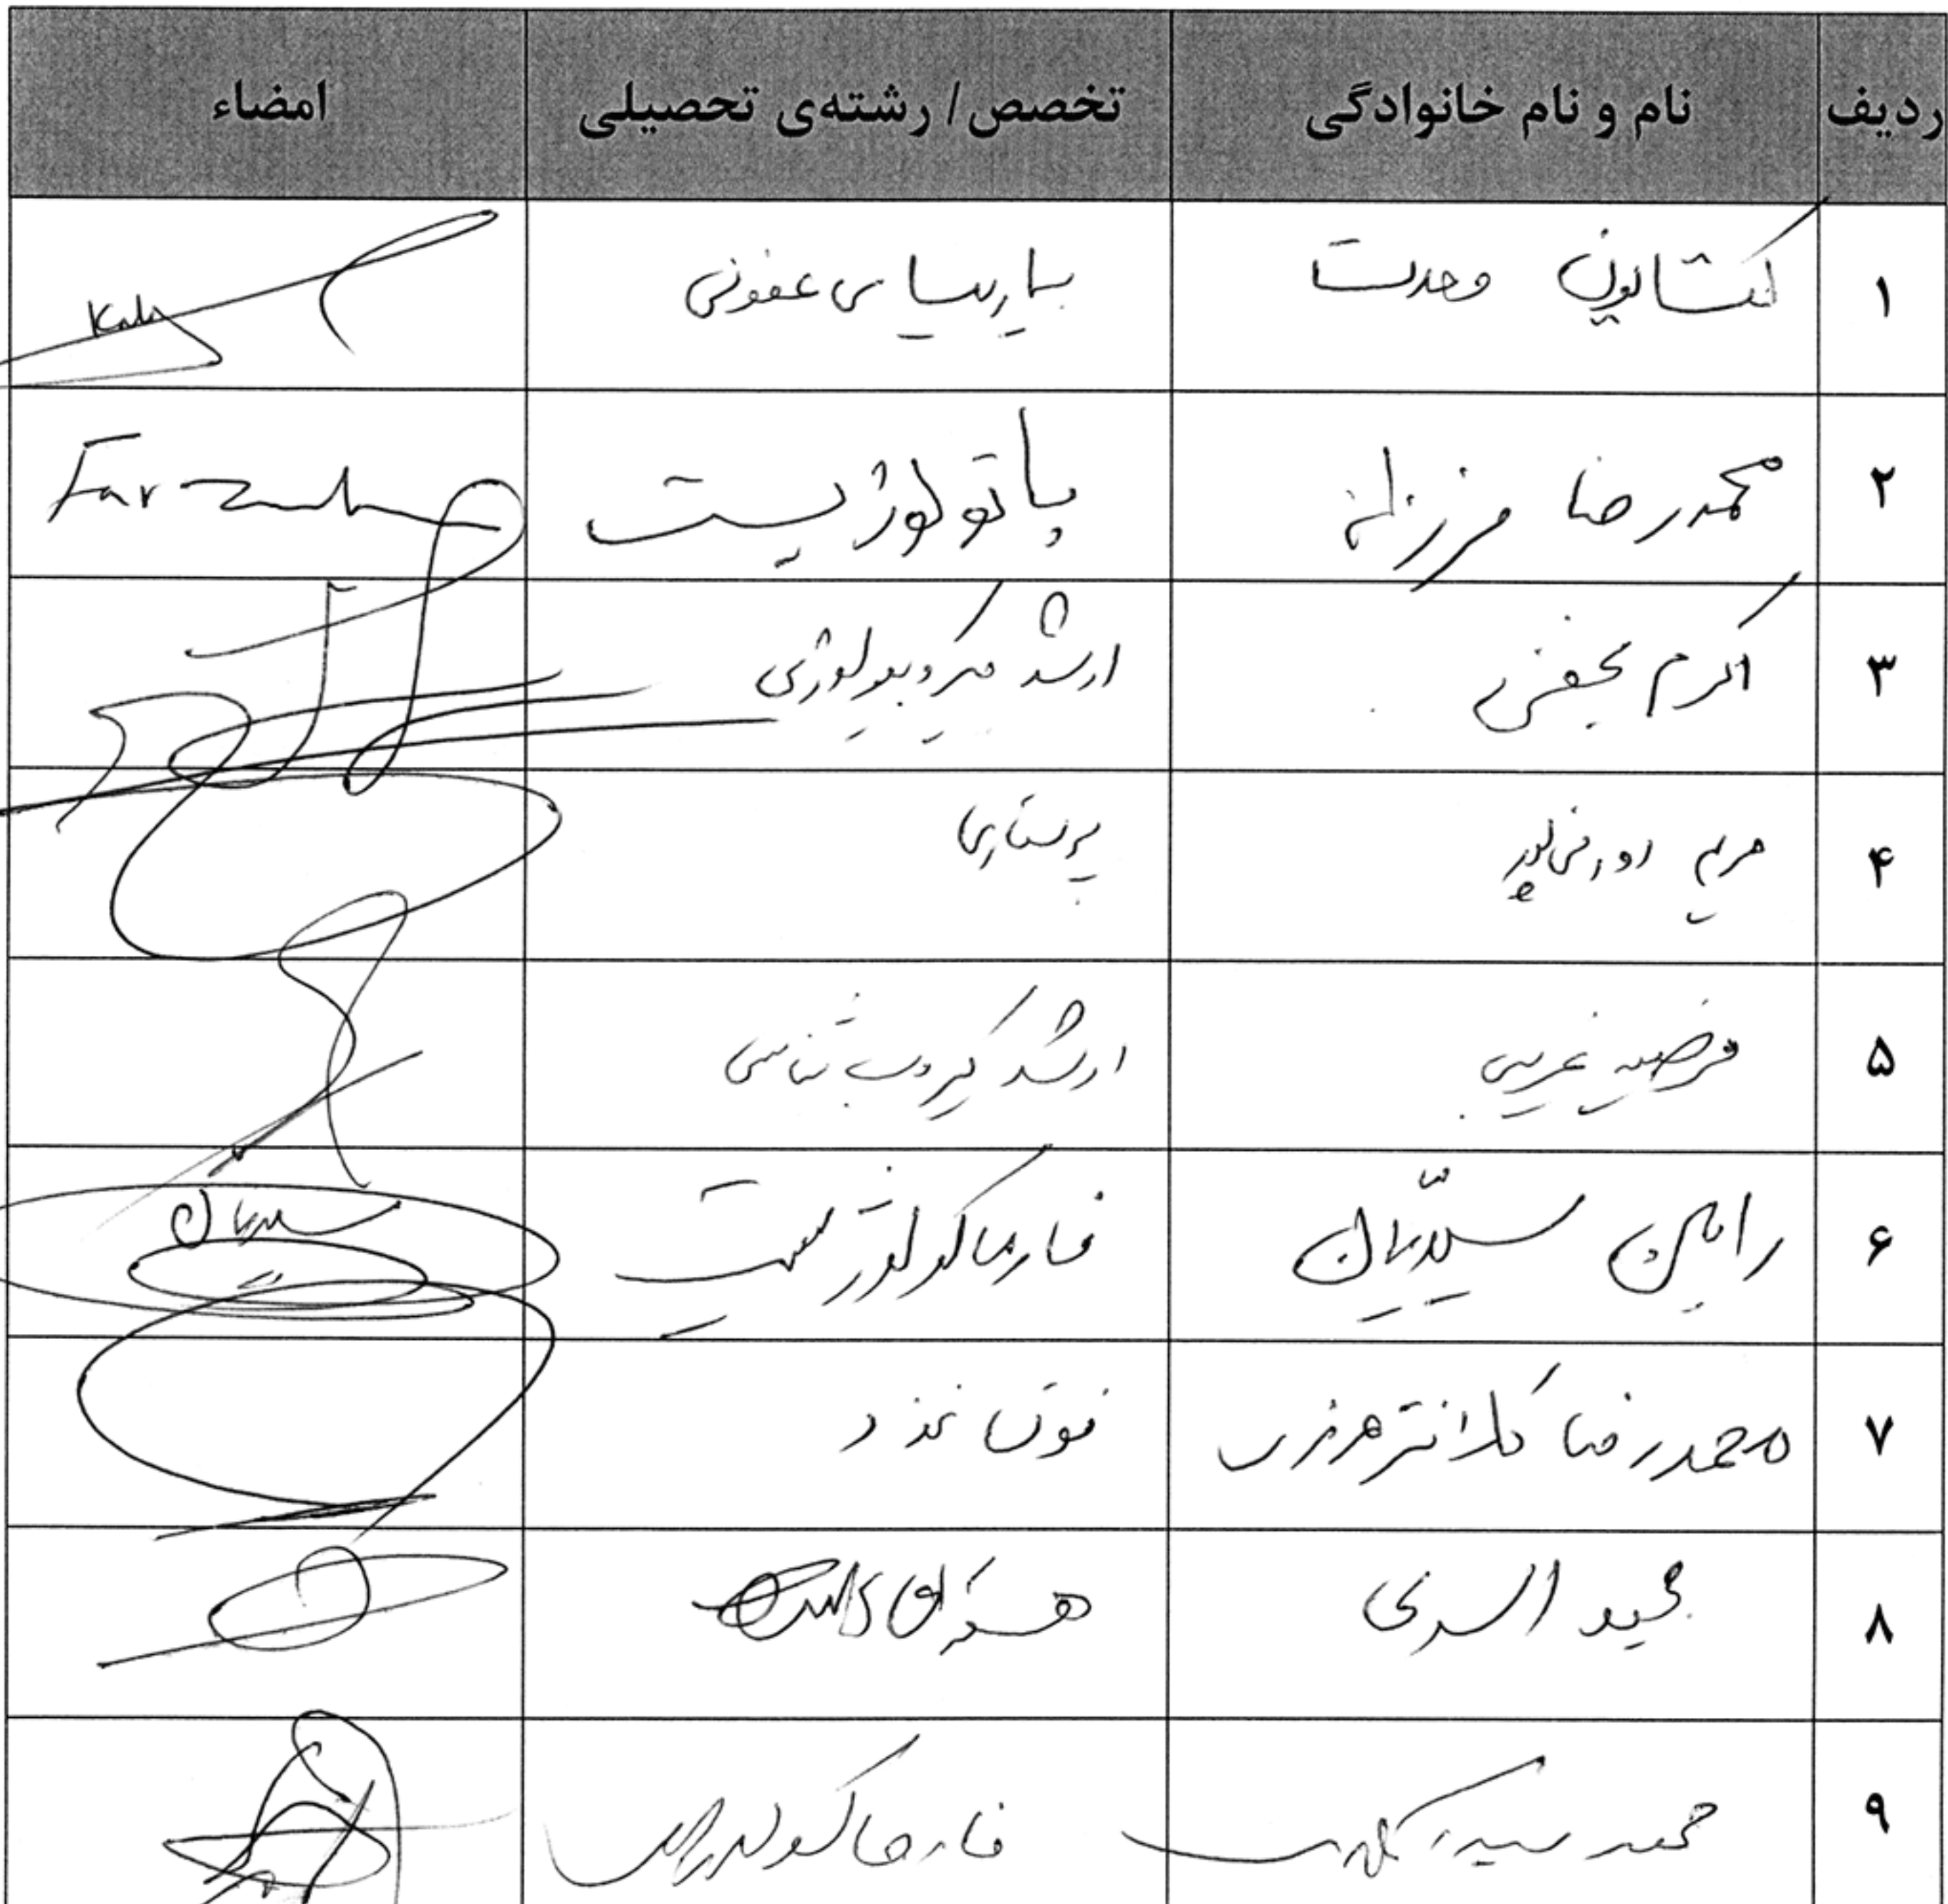 ردیف نام و نام خانوادگی تخصص / رشته‌ی تحصیلی امضاء
۱ کتایون وحدت بیماریهای عفونی
۲ محمدرضا فرزانه پاتولوژیست Farzaneh
۳ اکرم نجفی ارشد میکروبیولوژی
۴ مریم پرستاری
۵ مرضیه غریبی ارشد میکروب شناسی
۶ رامین سیدیان فارماکولوژیست سیدیان
۷ محمدرضا کلانتر هرمزی فوق تخصص غدد
۸ مجید اسدی هسته‌ای
۹ فارماکولوژیست